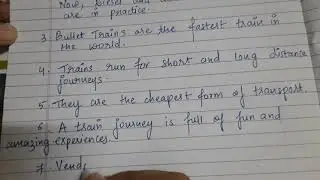 Now, Diesel and
are in practice.
3. Bullet Trains are the fastest train in
the world.
4. Trains run for short and long distance
journeys.
5. They are the cheapest form of transport.
6. A train journey is full of fun and
amazing experiences.
7. Vend